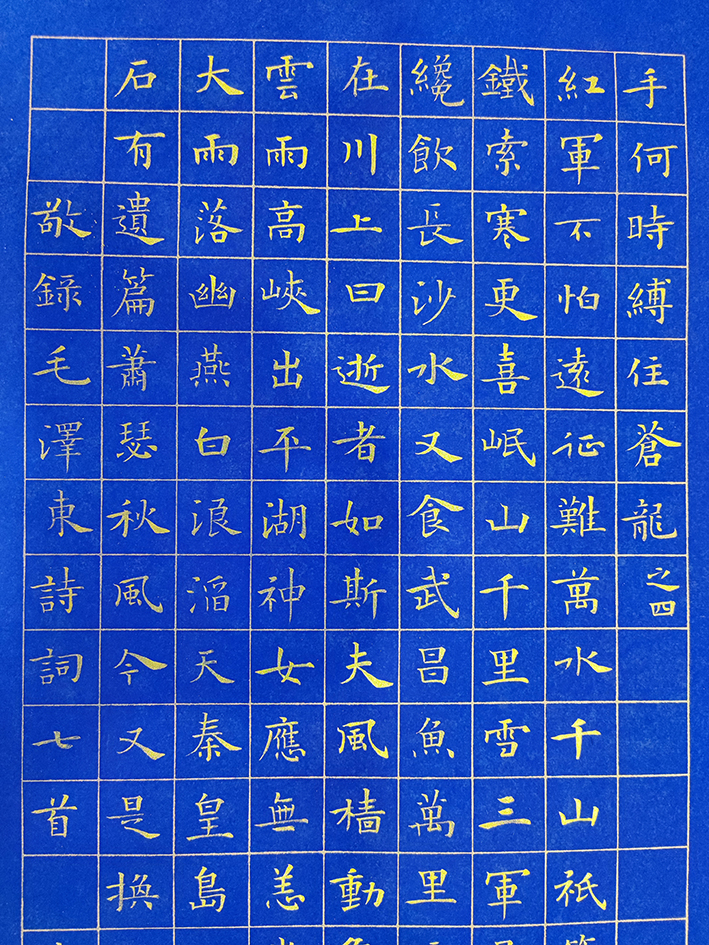 手何時縛住蒼龍之四
紅軍不怕遠征難萬水千山祇
鐵索寒更喜岷山千里雪三軍
纔飲長沙水又食武昌魚萬里
在川上曰逝者如斯夫風檣動
雲雨高峽出平湖神女應無恙
大雨落幽燕白浪滔天秦皇島
石有遺篇蕭瑟秋風今又是換
敬錄毛澤東詩詞七首